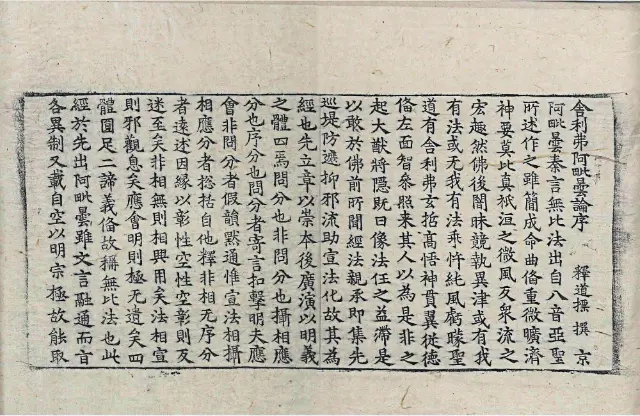 舎利弗阿毗曇論序　釋道摽　撰　京
阿毗曇秦言無比法出自八音亞聖
所述作之雖簡成命曲俻重微曠濟
神要莫比真祇洹之微風反衆流之
宏趣然佛後闇昧競執異津或有我
有法或无我有法乖忤純風虧矇聖
道有舎利弗玄哲高悟神貫翼從德
俻左面智叅照來其人以為是非之
起大猷將隱既曰像法任之益滯是
以敢於佛前所聞經法親承即集先
巡堤防遮抑邪流助宣法化故其為
經也先立章以崇本後廣演以明義
之體四焉問分也非問分也攝相應
分也序分也問分者寄言扣擊明夫應
會非問分者假韻黙通惟宣法相攝
相應分者揔括自他釋非相无序分
者遠述因緣以彰性空性空彰則反
迷至矣非相無則相興用矣法相宣
則邪觀息矣應會明則極无遺矣四
體圓足二諦義俻故稱無比法也此
經於先出阿毗曇雖文言融通而旨
各異制又載自空以明宗極故能取